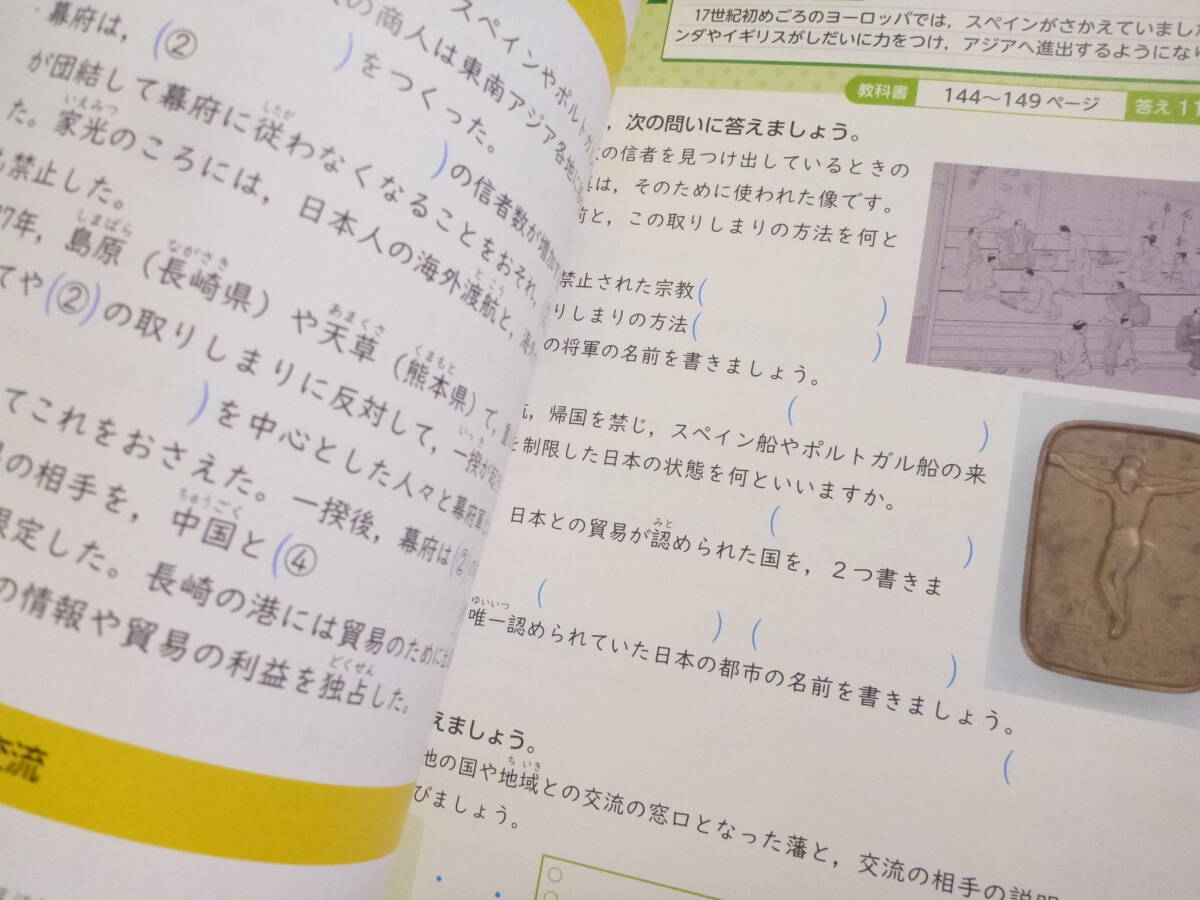 スペインやポルトガ
の商人は東南アジア各地に
幕府は，(② )をつくった。
)の信者数が増加
が団結して幕府に従わなくなることをおそれ，
したが
た。家光のころには，日本人の海外渡航と，海
いえみつ
とこう
も禁止した。
7年，島原（長崎県）や天草（熊本県）で，重
しまばら
ながさき
あまくさ
くまもと
てや(②)の取りしまりに反対して，一揆が
いっき
)を中心とした人々と幕府軍
てこれをおさえた。一揆後，幕府は(②)
の相手を，中国と(④
ちゅうごく
限定した。長崎の港には貿易のために
の情報や貿易の利益を独占した。
どくせん
交流
17世紀初めごろのヨーロッパでは，スペインがさかえていました
ンダやイギリスがしだいに力をつけ，アジアへ進出するようにな
教科書 144〜149ページ 答え 11
，次の問いに答えましょう。
の信者を見つけ出しているときの
は，そのために使われた像です。
前と，この取りしまりの方法を何と
禁止された宗教( )
りしまりの方法( )
の将軍の名前を書きましょう。
( )
，帰国を禁じ，スペイン船やポルトガル船の来
と制限した日本の状態を何といいますか。
( )
日本との貿易が認められた国を，２つ書きま
みと
( ) ( )
唯一認められていた日本の都市の名前を書きましょう。
ゆいいつ
(
えましょう。
他の国や地域との交流の窓口となった藩と，交流の相手の説明
ちいき
びましょう。